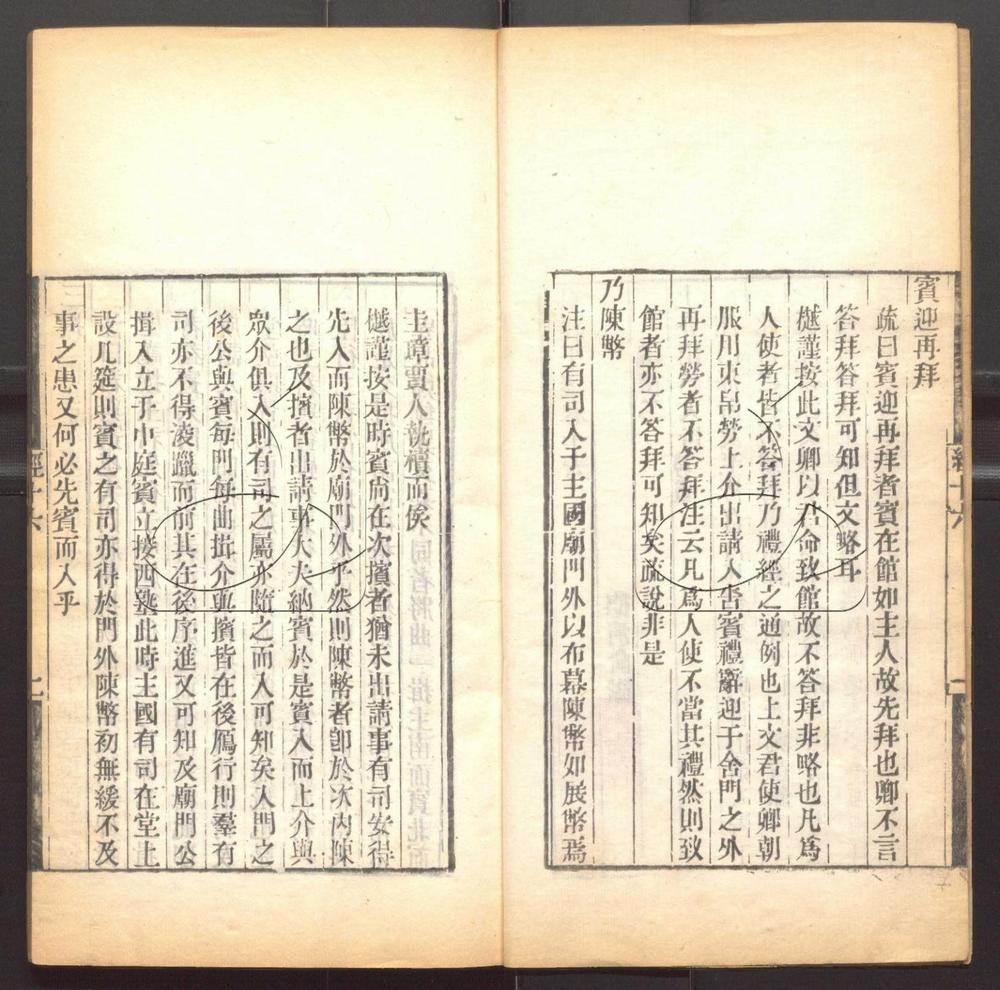 賓迎再拜
疏曰賓迎再拜者賓在館如主人故先拜也卿不言
答拜答拜可知但文略耳
樾謹按此文卿以君命致館故不答拜非略也凡爲
人使者皆不答拜乃禮經之通例也上文君使卿朝
服用束帛勞上介出請入告賓禮辭迎于舍門之外
再拜勞者不答拜注云凡爲人使不當其禮然則致
館者亦不答拜可知矣疏說非是
乃陳幣
注曰有司入于主國廟門外以布幕陳幣如展幣焉
經十六
圭璋賈人執櫝而俟
樾謹按是時賓尚在次擯者猶未出請事有司安得
先入而陳幣於廟門外乎然則陳幣者卽於次內陳
之也及擯者出請事大夫納賓於是賓入而上介與
眾介俱入則有司之屬亦隨之而入可知矣入門之
後公與賓每門每曲揖介與擯皆在後鴈行則羣有
司亦不得淩躐而前其在後序進又可知及廟門公
揖入立于中庭賓立接西塾此時主國有司在堂上
設几筵則賓之有司亦得於門外陳幣初無緩不及
事之患又何必先賓而入乎
經十六
二